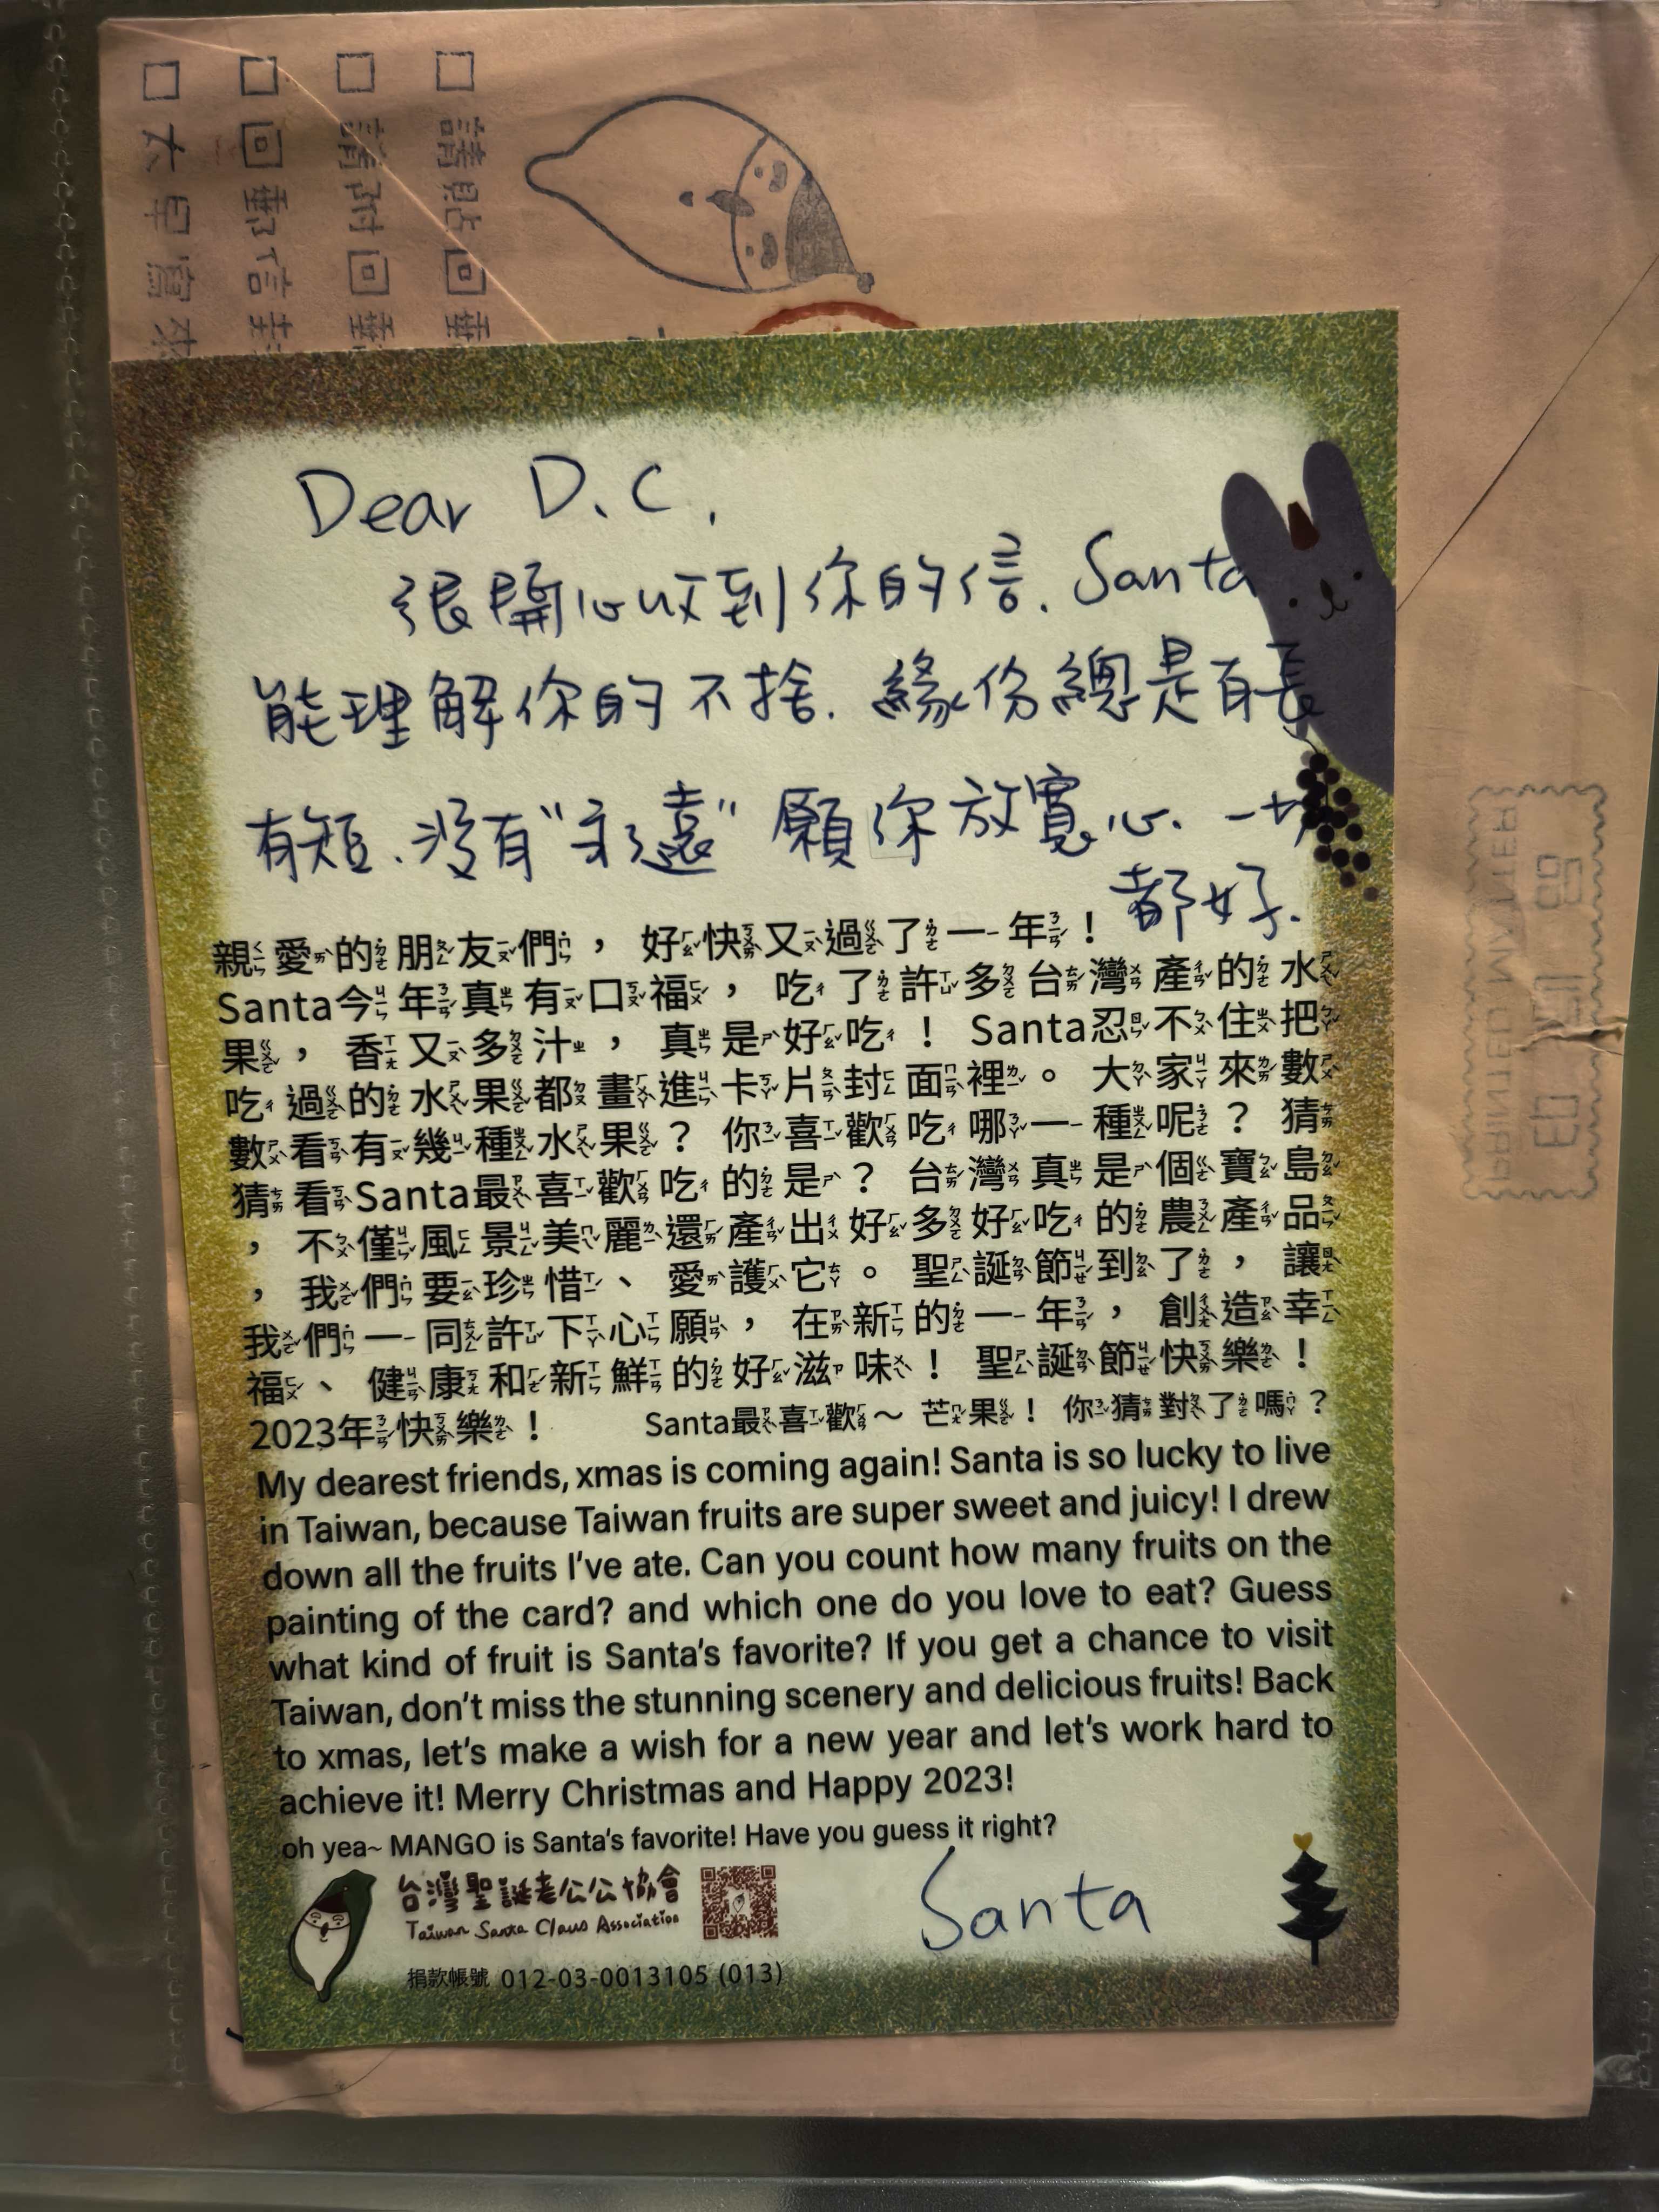 Dear D.C.
很開心收到你的信. Santa
能理解你的不捨. 緣份總是有長
有短、沒有"永遠" 願你放寬心. 一切
都好.
親愛的朋友們，好快又過了一年！
Santa今年真有口福，吃了許多台灣產的水
果，香又多汁，真是好吃！Santa忍不住把
吃過的水果都畫進卡片封面裡。大家來數
數看有幾種水果？你喜歡吃哪一種呢？猜
猜看Santa最喜歡吃的是？台灣真是個寶島
，不僅風景美麗還產出好多好吃的農產品
，我們要珍惜、愛護它。聖誕節到了，讓
我們一同許下心願，在新的一年，創造幸
福、健康和新鮮的好滋味！聖誕節快樂！
2023年快樂！ Santa最喜歡～芒果！你猜對了嗎？
My dearest friends, xmas is coming again! Santa is so lucky to live
in Taiwan, because Taiwan fruits are super sweet and juicy! I drew
down all the fruits I've ate. Can you count how many fruits on the
painting of the card? and which one do you love to eat? Guess
what kind of fruit is Santa's favorite? If you get a chance to visit
Taiwan, don't miss the stunning scenery and delicious fruits! Back
to xmas, let's make a wish for a new year and let's work hard to
achieve it! Merry Christmas and Happy 2023!
oh yea~ MANGO is Santa's favorite! Have you guess it right?
Santa
台灣聖誕老公公協會
Taiwan Santa Claus Association
捐款帳號 012-03-0013105 (013)
□請貼回郵
□請附回郵
□回郵信封
□太早寫來
印刷品
PRINTED MATTER